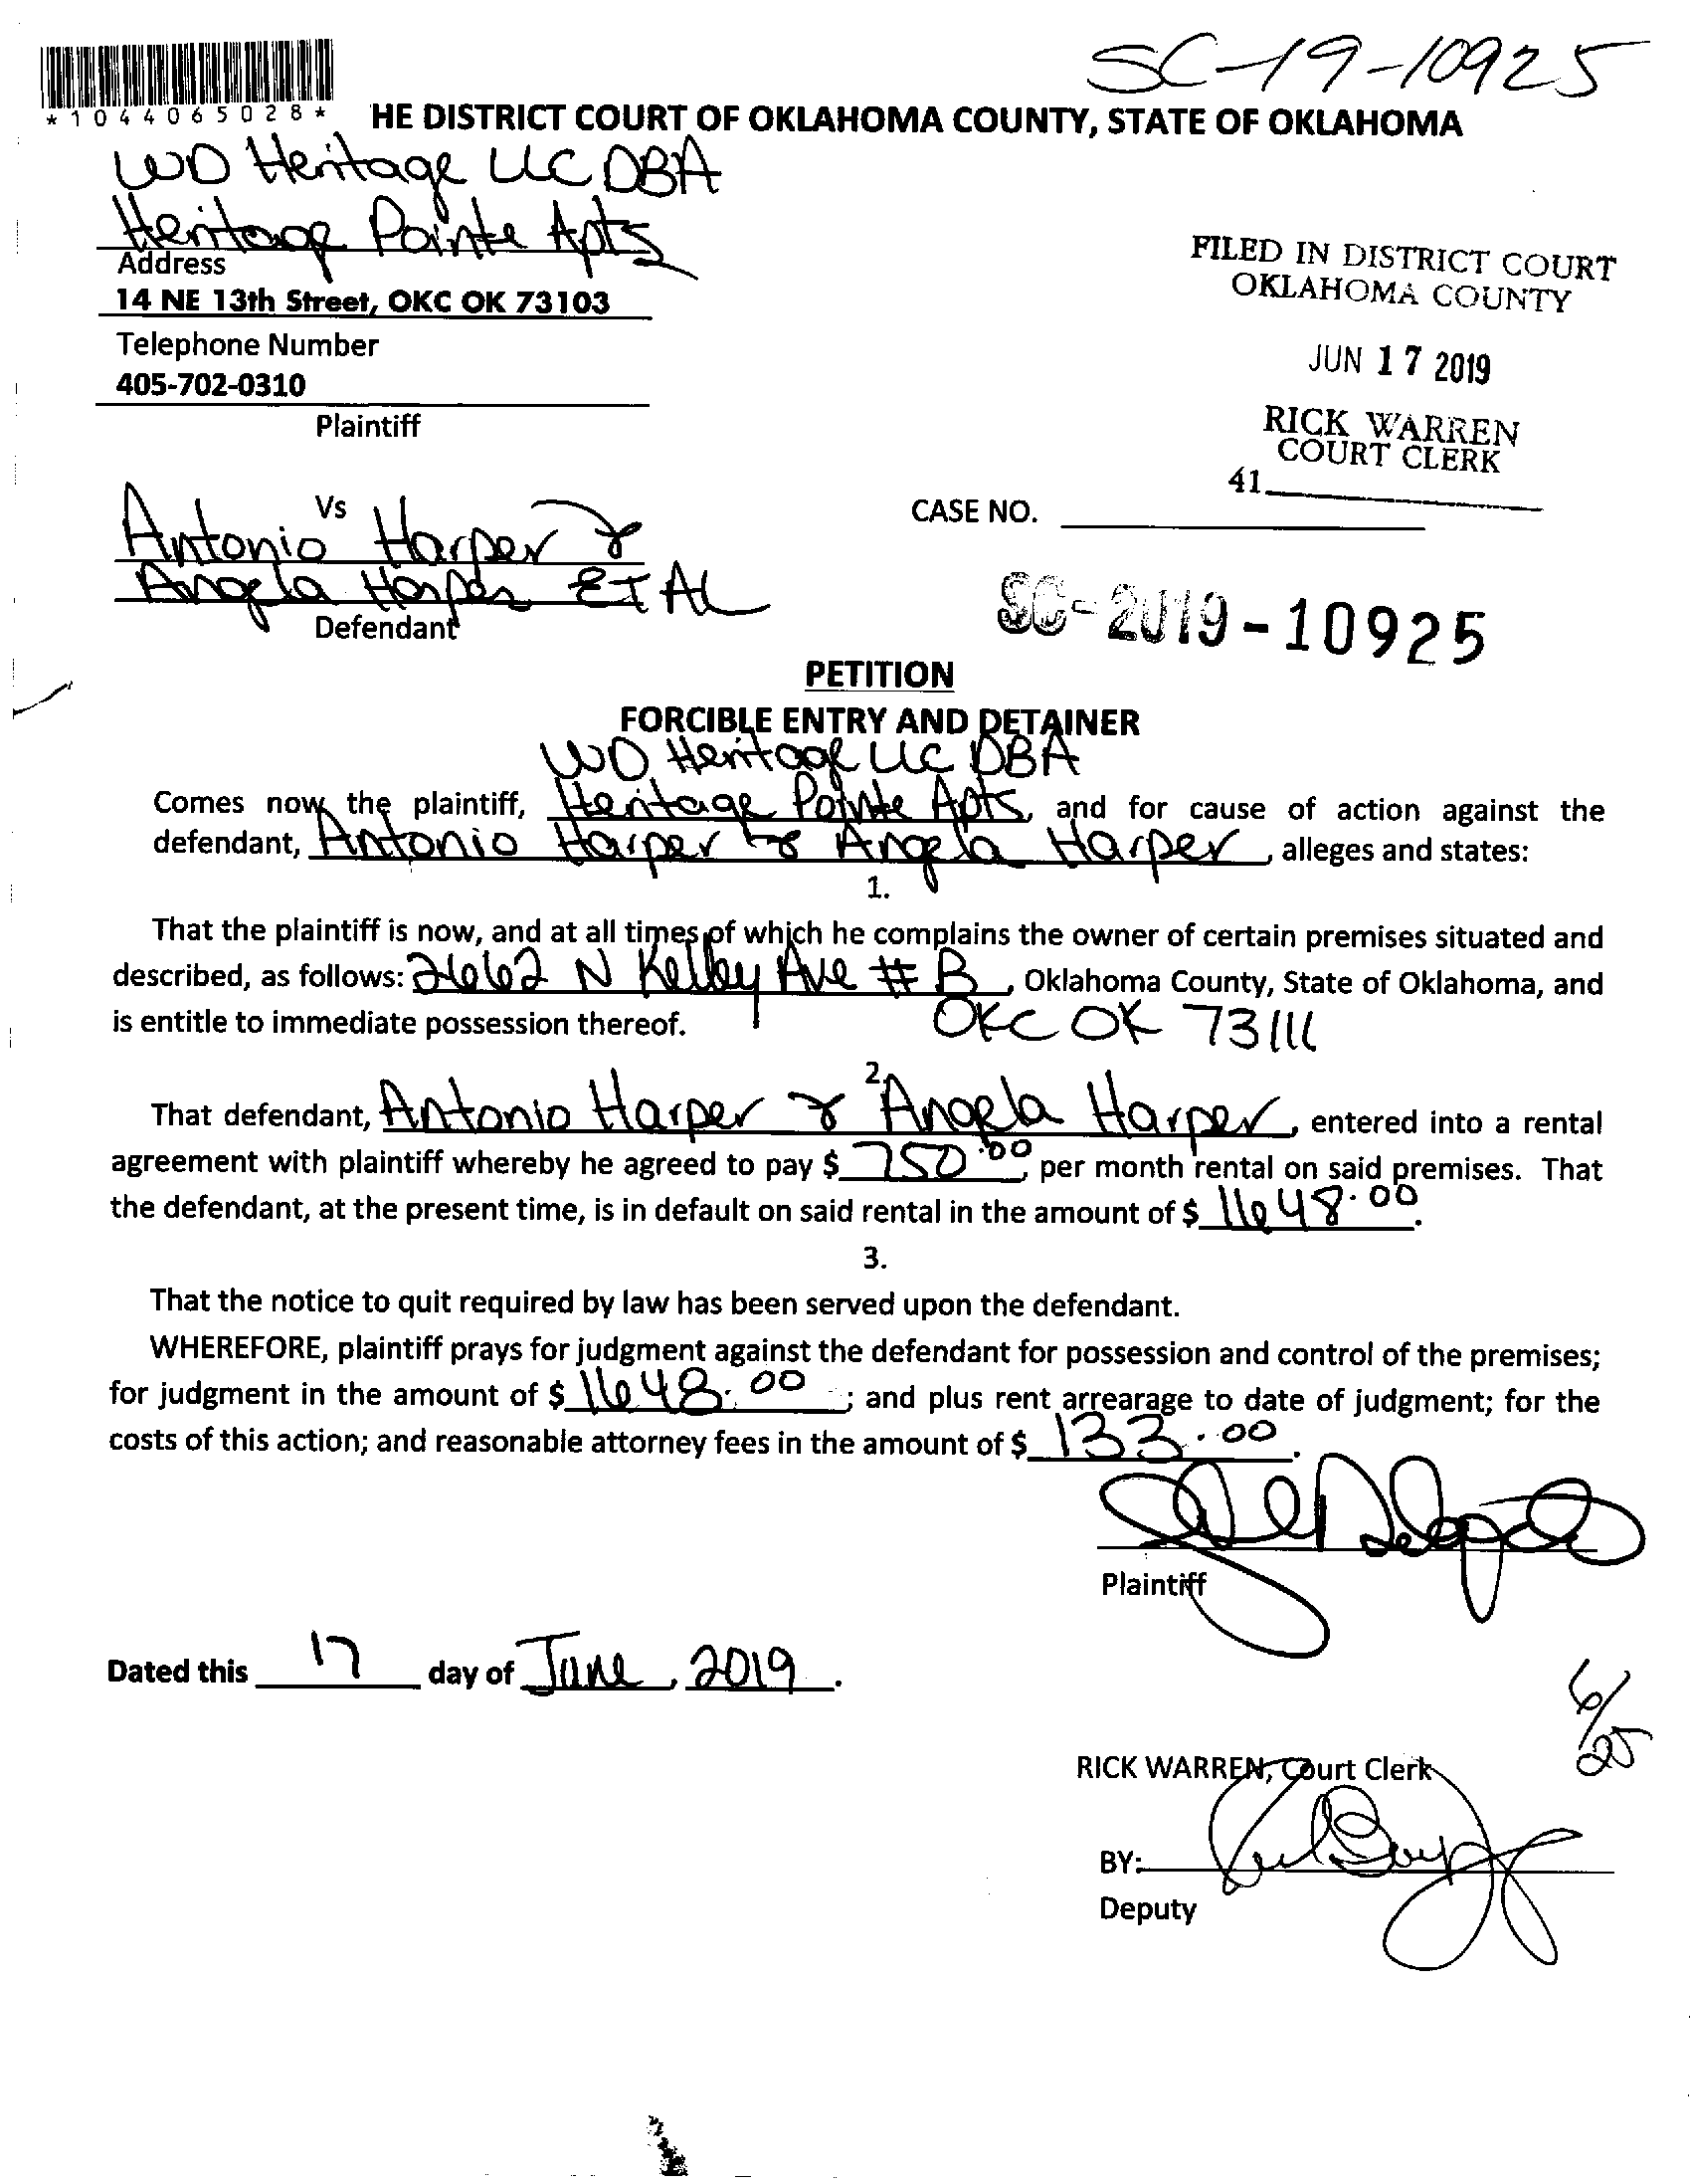 SC-19-10925
*1044065028*
HE DISTRICT COURT OF OKLAHOMA COUNTY, STATE OF OKLAHOMA
WD Heritage LLC DBA
Heritage Pointe Apts
Address
14 NE 13th Street, OKC OK 73103
Telephone Number
405-702-0310
Plaintiff
FILED IN DISTRICT COURT
OKLAHOMA COUNTY
JUN 17 2019
RICK WARREN
COURT CLERK
41
Vs
Antonio Harper &
Angela Harper ET AL
Defendant
CASE NO.
SC-2019-10925
PETITION
FORCIBLE ENTRY AND DETAINER
WD Heritage LLC DBA
Comes now the plaintiff, Heritage Pointe Apts, and for cause of action against the
defendant, Antonio Harper & Angela Harper, alleges and states:
1.
That the plaintiff is now, and at all times of which he complains the owner of certain premises situated and
described, as follows: 2662 N Kelley Ave # B, Oklahoma County, State of Oklahoma, and
is entitle to immediate possession thereof. OKC OK 73111
2.
That defendant, Antonio Harper & Angela Harper, entered into a rental
agreement with plaintiff whereby he agreed to pay $ 750.00, per month rental on said premises. That
the defendant, at the present time, is in default on said rental in the amount of $ 1648.00.
3.
That the notice to quit required by law has been served upon the defendant.
WHEREFORE, plaintiff prays for judgment against the defendant for possession and control of the premises;
for judgment in the amount of $ 1648.00; and plus rent arrearage to date of judgment; for the
costs of this action; and reasonable attorney fees in the amount of $ 133.00.
Plaintiff
Dated this 17 day of June, 2019.
6/25
RICK WARREN, Court Clerk
BY:
Deputy